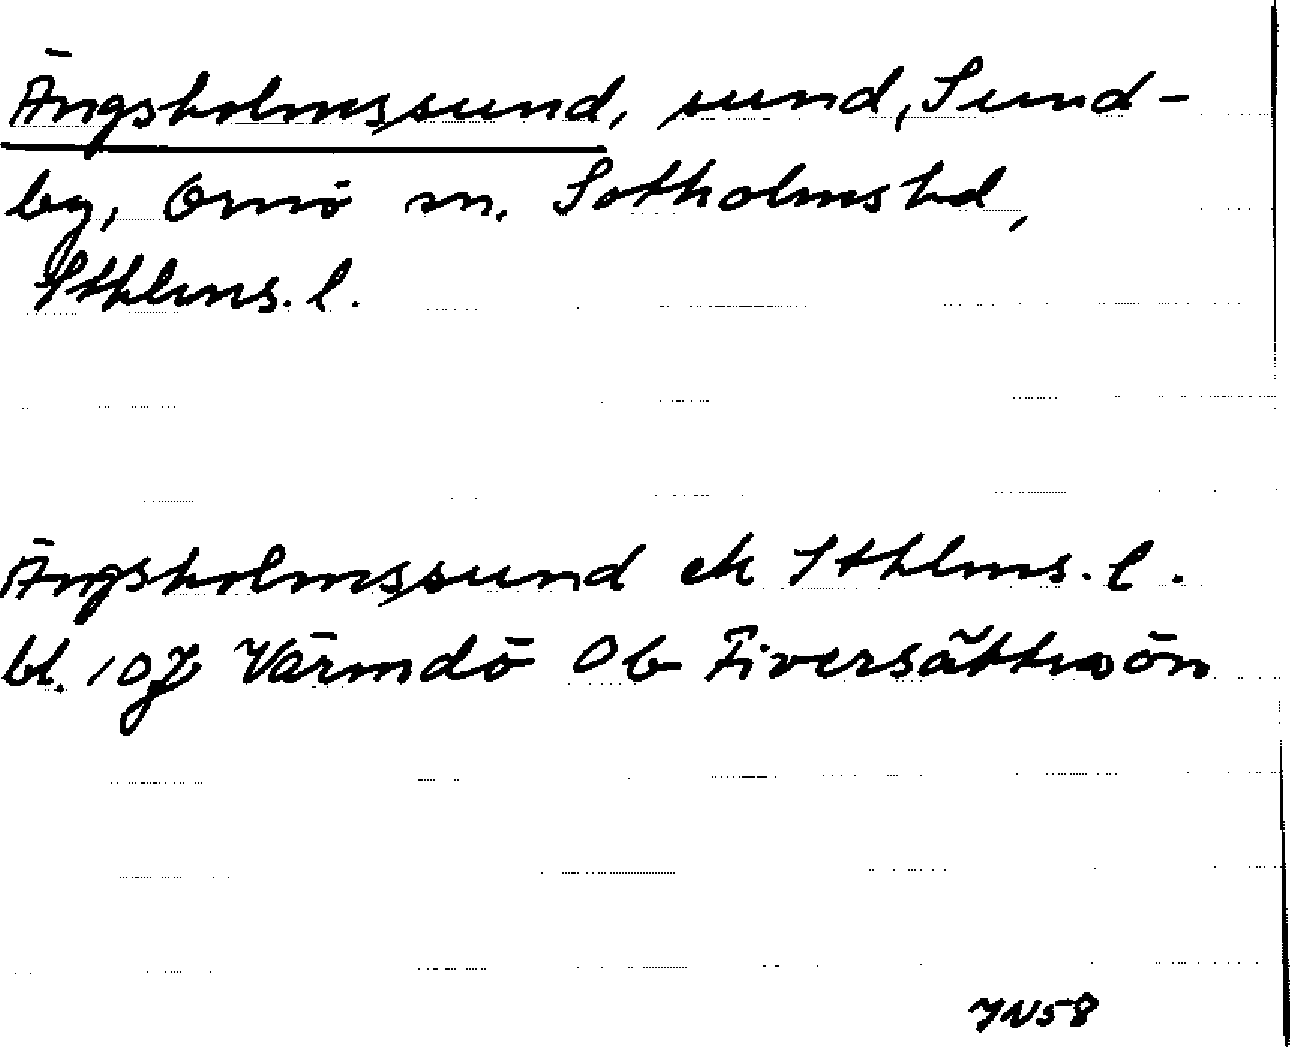 Ängsholmssund, sund, Sund-
by, Ornö sn. Sotholms hd,
Sthlms. l.
Ängsholmssund ek Sthlms. l.
bl. 10J Värmdö 0b Fiversättraön
JN58